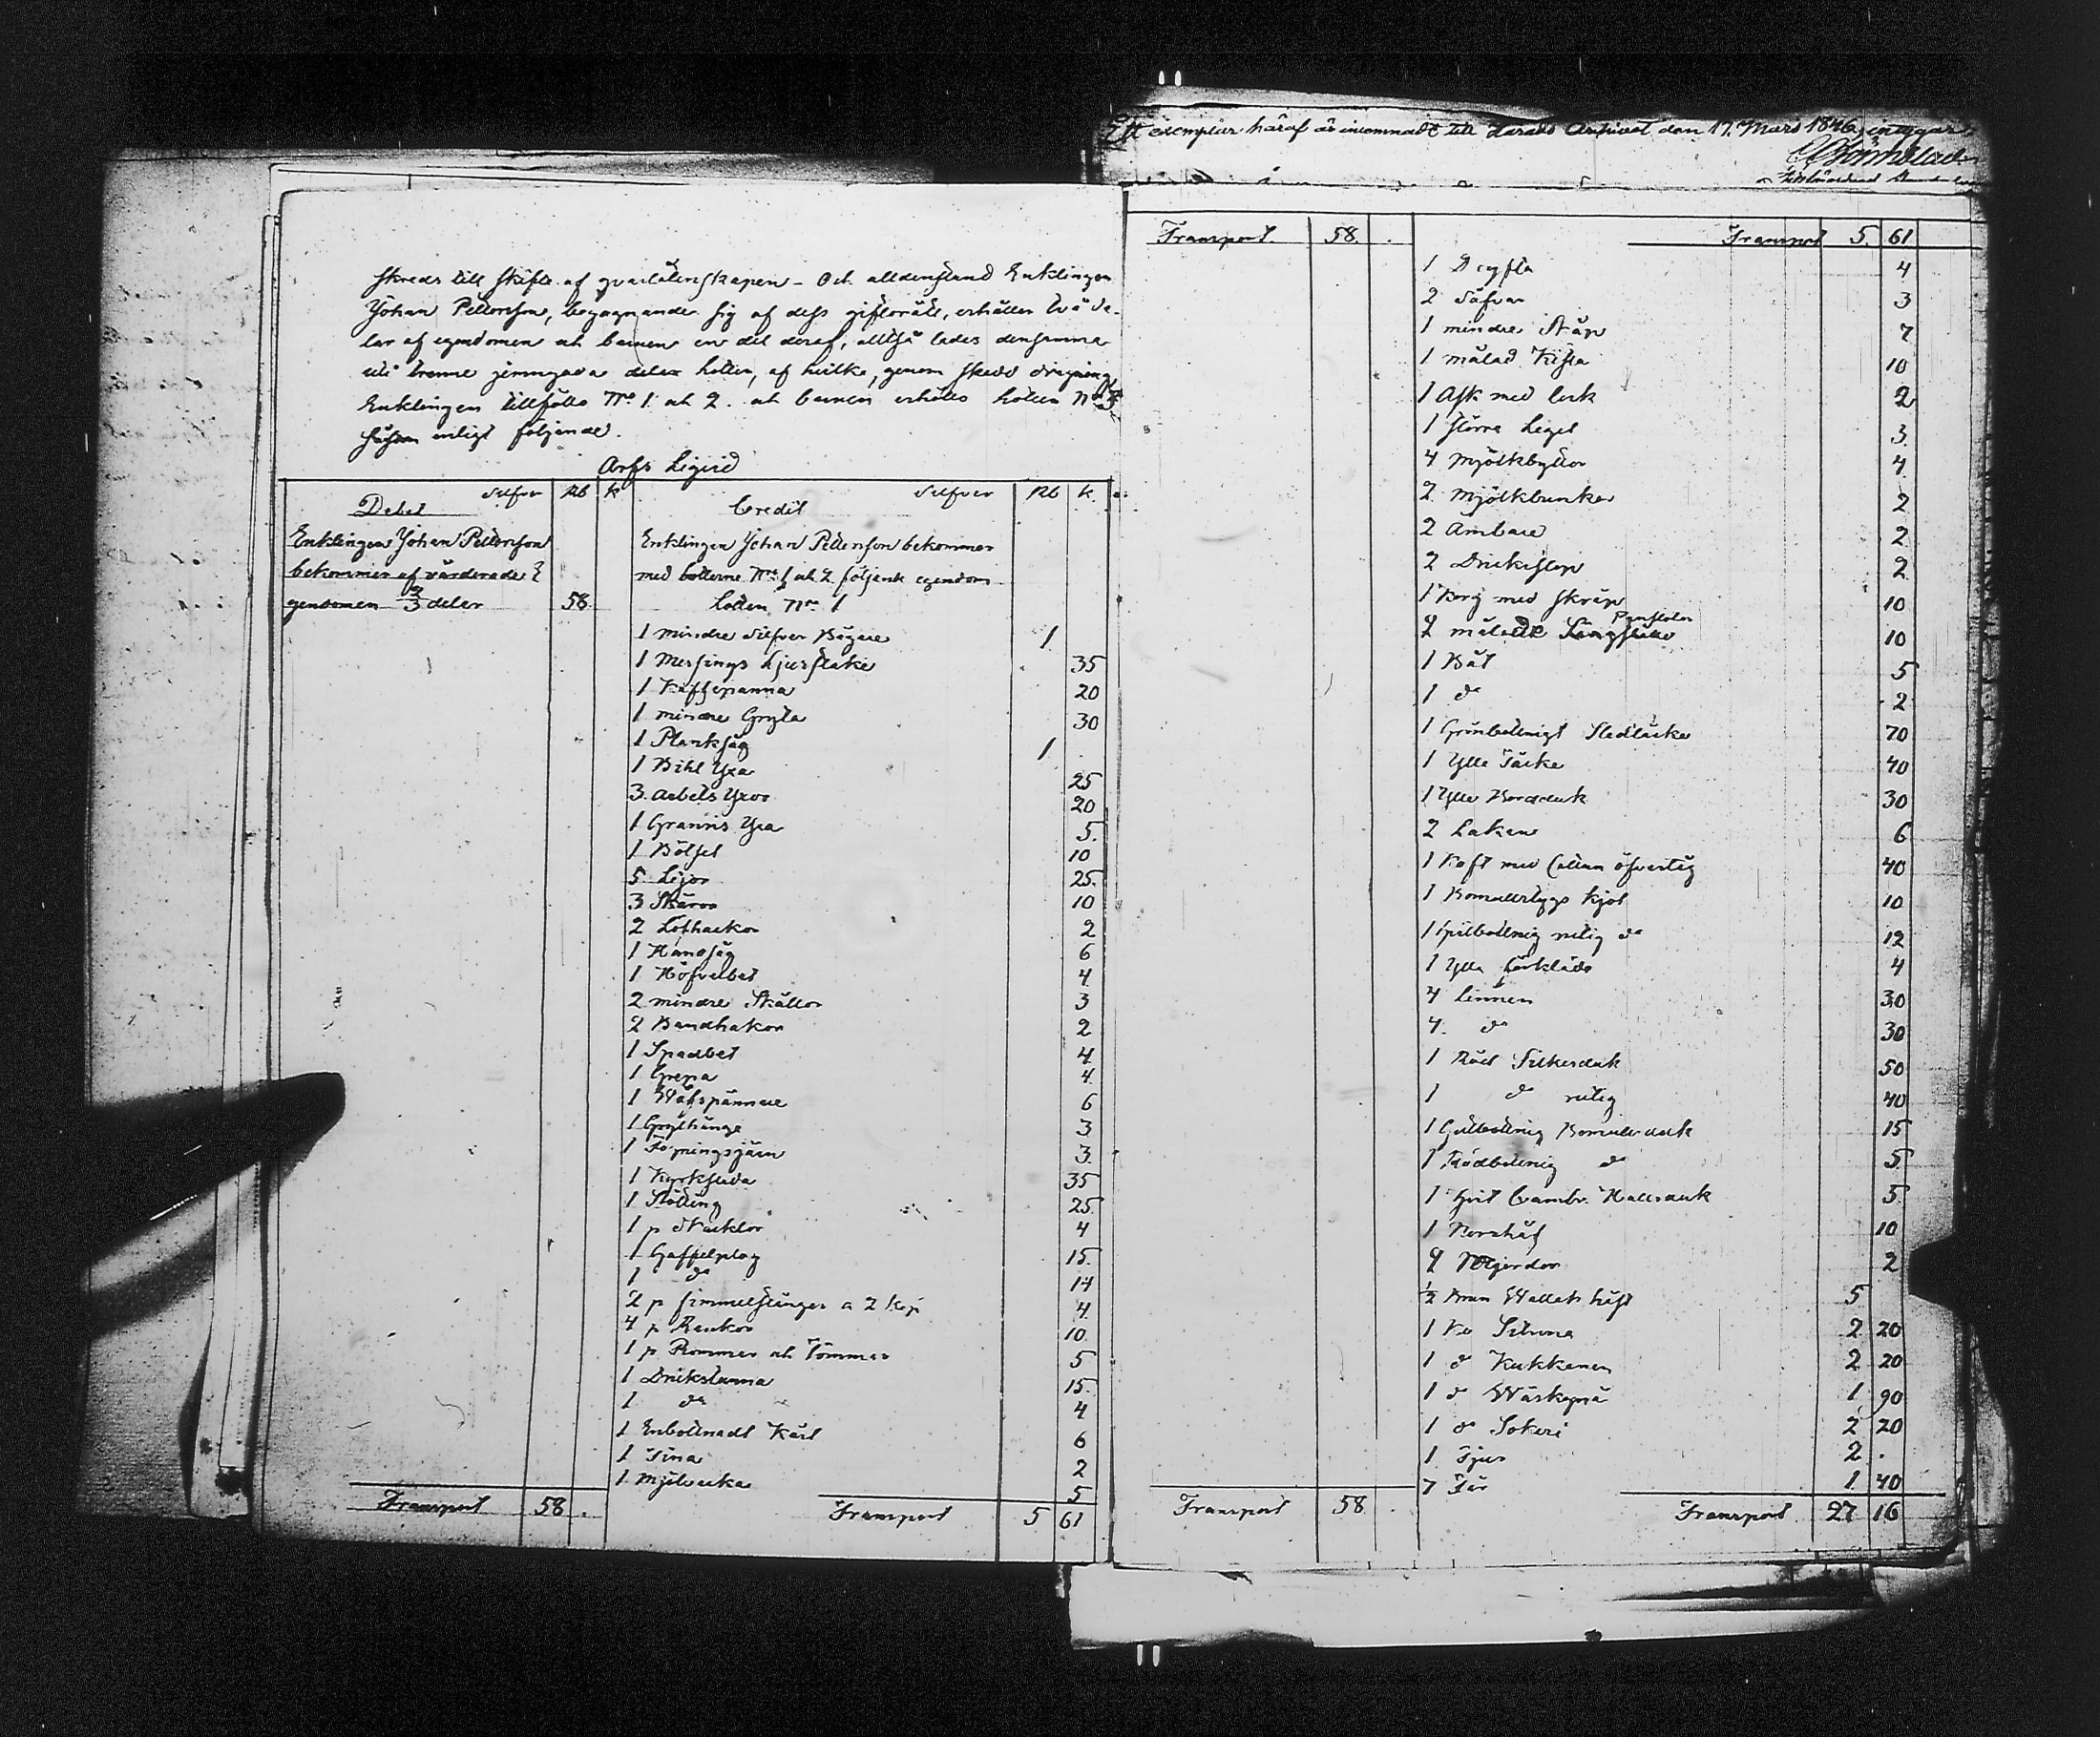 skreds till skifte af qvarlåtenskapen - Och alldenstund Enklingen
Johan Pettersson, begagnande sig af dess giftorätt, erhåller två de-
lar af egendomen och barnen en del deraf, alltså lades densamma
uti trenne jemngoda lotter, af hvilka, genom skedd dragning
Enklingen tillföllo No 1 och 2. och barnen erhöllo lotten No 3
såsom enligt följande.
Arfs Liqvid
Debet Silfver Rb k
Enklingen Johan Pettersson
bekommer af värderade E
gendomen 2/3 delar 58.
Credit Silfver Rb k.
Enklingen Johan Pettersson bekommer
med lotterne No 1 och 2 följande egendom
Lotten No 1
1 mindre Silfver Bägare 1
1 Messings Ljusstake 35
1 Kaffepanna 20
1 mindre Gryta 30
1 Planksåg 1
1 Bihl Yxa 25
3 Arbets Yxor 20
1 Grannis Yxa 5.
1 Bötsel 10
5 Lijor 25.
3 Skäror 10
2 Löfhackor 2
1 Handsåg 6
1 Höfvelbet 4
2 mindre Skällor 3
2 Bandhakar 2
1 Spadbet 4
1 Grepa 4
1 Wäfspännare 6
1 Grythänge 3
1 Torningsjärn 3.
1 Kyrksläda 35
1 Stötting 25.
1 p Skacklor 4
1 Gaffelplog 15.
1 do 14
2 p Simmelstänger a 2 kop 4
4 p Rankor 10
1 p Rommor och Tömmar 5
1 Drickstunna 15.
1 do 4
1 Enbottnadt Kärl 6
1 Tina 2
1 Mjölsäcka 5
Transport 58 . Transport 5 61
Ett exemplar häraf är inlemnadt till Härads Arkivet den 17. Mars 1846, intygar,
Transport 58 . Transport 5. 61
1 Dryfta 4
2 Såfvar 3
1 mindre Skåp 7
1 målad Kista 10
1 Ask med lock 2
1 större Legel 3.
4 Mjölkbyttor 4
2 Mjölkbunkar 2
2 Ambare 2
2 Dricksstop 2
1 Korg med skräp 10
2 målade Pinstolar 10
1 Båt 5
1 do 2
1 Grönbottnigt Slädtäcke 70
1 Ylle Täcke 40
1 Ylle Bordduk 30
2 Lakan 6
1 Koft med Cattun öfvertåg 40
1 Bomullstygs kjol 10
1 Gulbottnig rutig do 12
1 Ylle förkläde 4
4 Linnen 30
4. do 30
1 Röd Silkesduk 50
1 do rutig 40
1 Gulbottnig Bomullsduk 15
1 Rödbottnig do 5
1 hvit Cambr. Halsduk 5
1 Kornhåf 10
4 Mjerdor 2
1/2 Brun Wallak häst 5
1 Ko Sitruna 2 20
1 do Kukkanen 2 20
1 do Wäskynä 1. 90
1 do Sokeri 2 20
1 Tjur 2 .
7 Får 1 40
Transport 58 . Transport 27 16